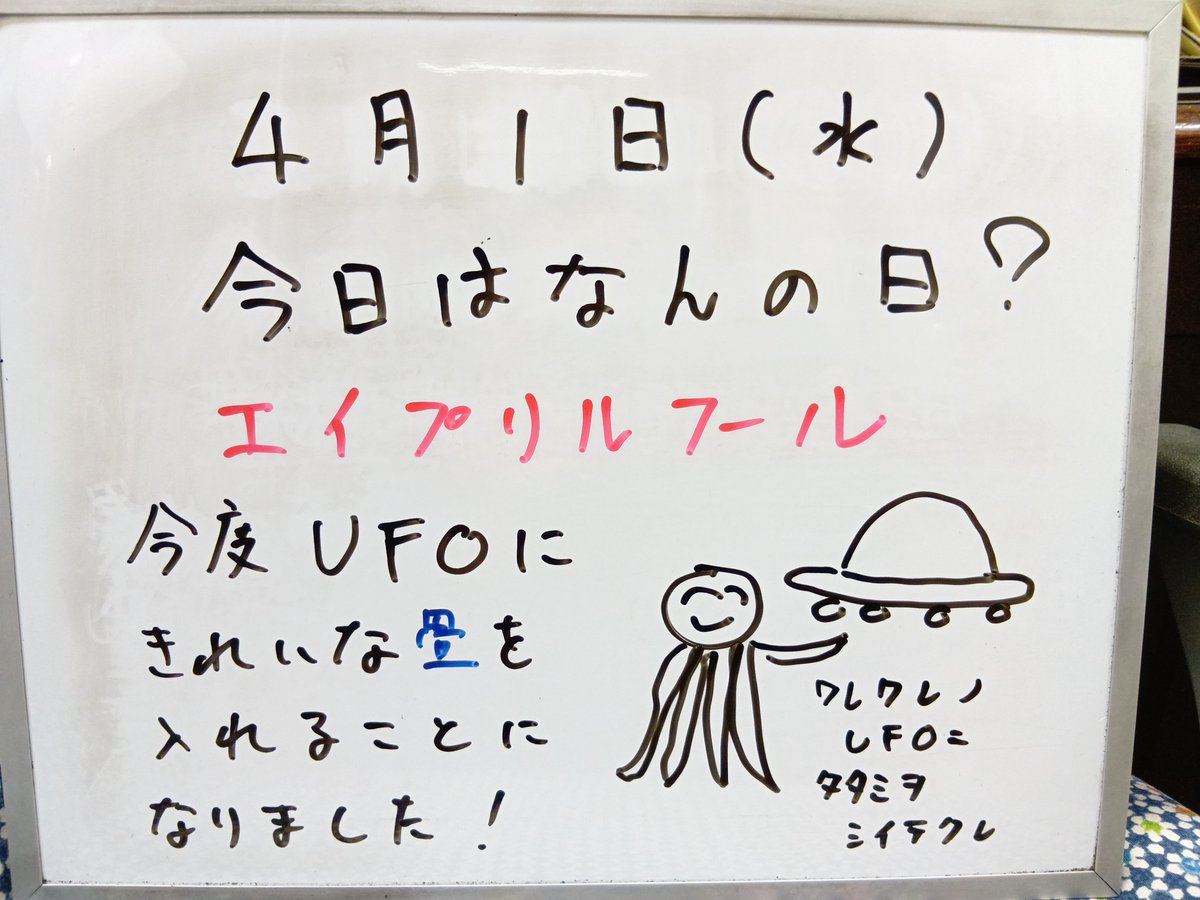 4月1日(水)
今日はなんの日?
エイプリルフール
今度UFOに
きれいな畳を
入れることに
なりました!
ワレワレノ
UFOニ
タタミヲ
シイテクレ